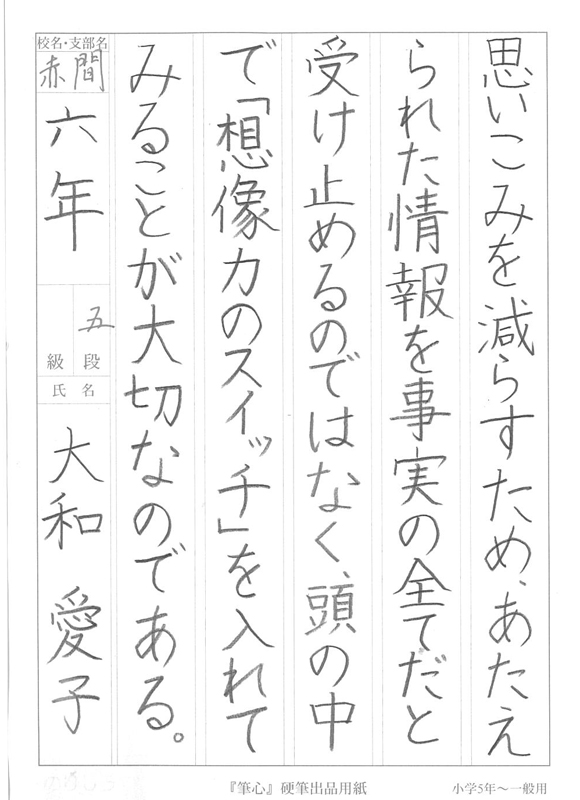 思いこみを減らすため、あたえ
られた情報を事実の全てだと
受け止めるのではなく、頭の中
で「想像力のスイッチ」を入れて
みることが大切なのである。
校名・支部名
赤間
六年
五段
級
氏名
大和 愛子
『筆心』硬筆出品用紙
小学5年~一般用